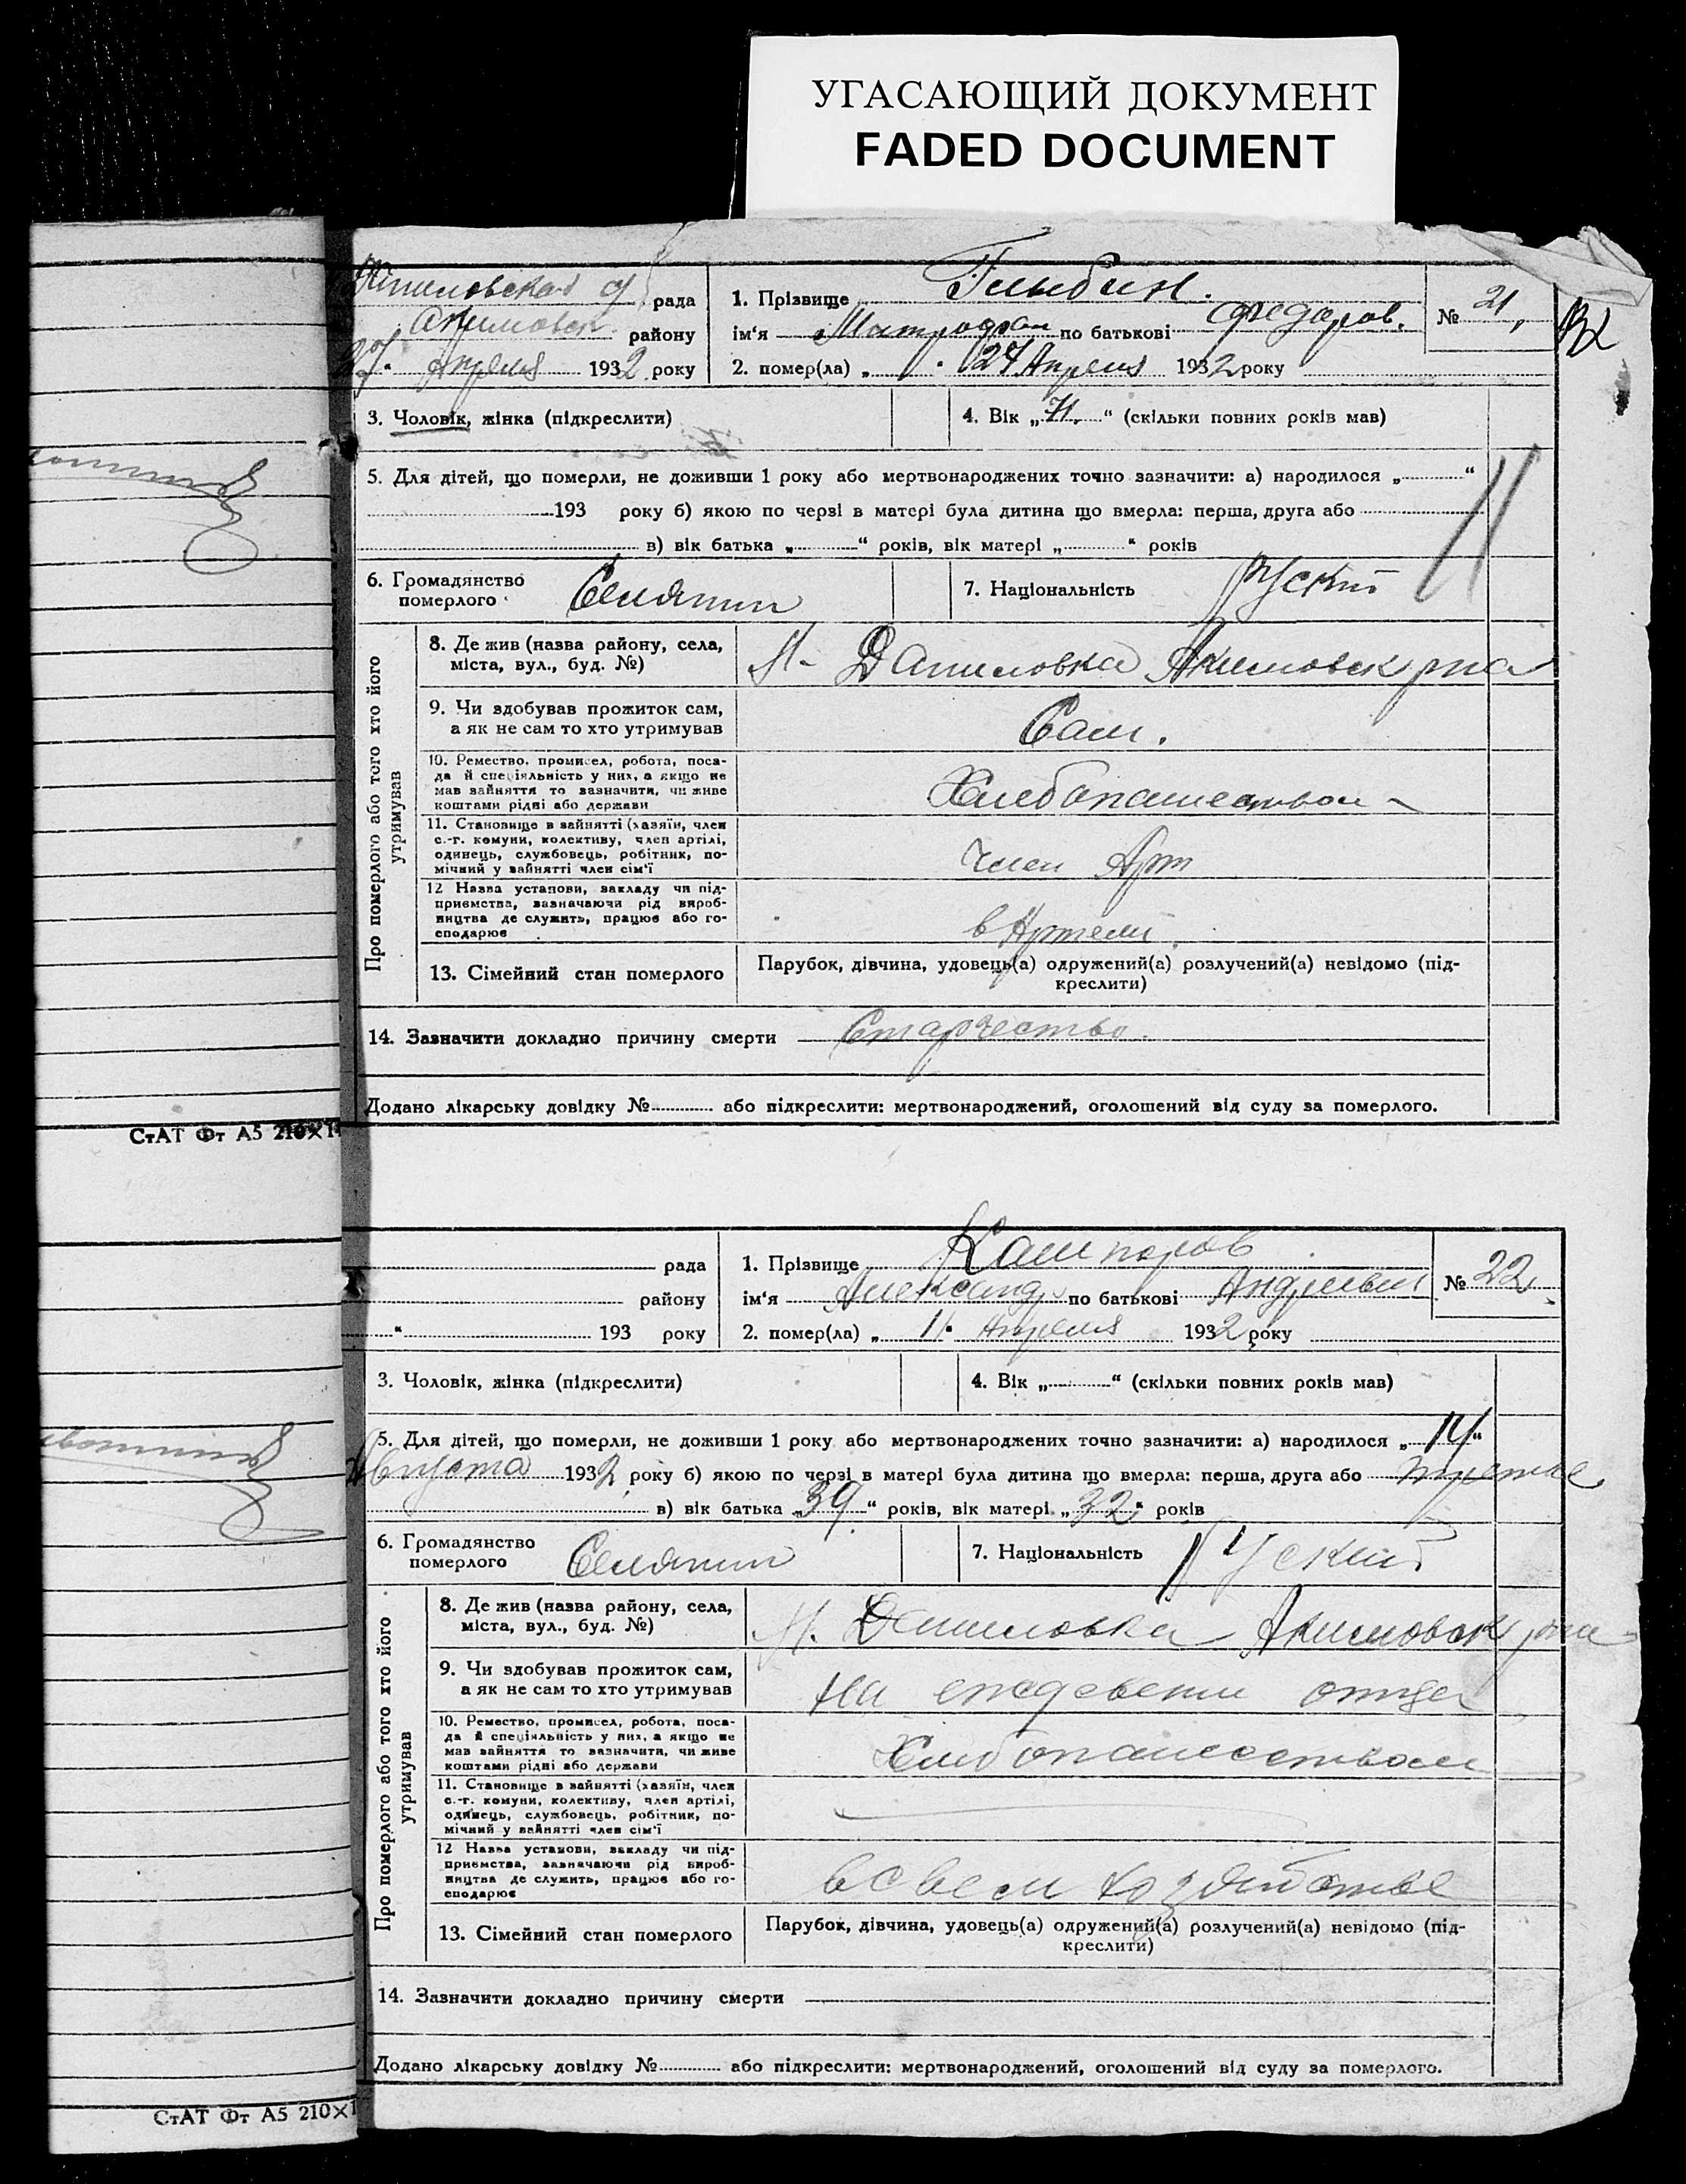 УГАСАЮЩИЙ ДОКУМЕНТ
FADED DOCUMENT
рада
Акимовск. району
27 " Апреля 1932 року
1. Прізвище
ім'я Митрофан по батькові Федоров.
2. помер(ла) „ 27 Апреля 1932 року
№ 21,
3. Чоловік, жінка (підкреслити)
4. Вік „71" (скільки повних років мав)
5. Для дітей, що померли, не доживши 1 року або мертвонароджених точно зазначити: а) народилося „ "
193 року б) якою по черзі в матері була дитина що вмерла: перша, друга або
в) вік батька „ " років, вік матері „ " років
6. Громадянство
померлого Селянин
7. Національність Руский
Про померлого або того хто його
утримував
8. Де жив (назва району, села,
міста, вул., буд. №)
М- Даниловка Акимовск р-на
9. Чи здобував прожиток сам,
а як не сам то хто утримував
Сам.
10. Ремество, промисел, робота, поса-
да й спеціяльність у них, а якщо не
мав зайняття то зазначити, чи живе
коштами рідні або держави
Хлебопашеством
11. Становище в зайнятті (хазяїн, член
с.-г. комуни, колективу, член артілі,
одинець, службовець, робітник, по-
мічний у зайнятті член сім'ї
Член Арт
12 Назва установи, закладу чи під-
приємства, зазначаючи рід вироб-
ництва де служить, працює або го-
сподарює
в Артели.
13. Сімейний стан померлого
Парубок, дівчина, удовець(а) одружений(а) розлучений(а) невідомо (під-
креслити)
14. Зазначити докладно причину смерти Старчество.
Додано лікарську довідку № або підкреслити: мертвонароджений, оголошений від суду за померлого.
СтАТ Фт А5 210×1
рада
району
" 193 року
1. Прізвище Кашпоров
ім'я Александр по батькові
2. помер(ла) „ 11 Апреля 1932 року
№ 22,
3. Чоловік, жінка (підкреслити)
4. Вік „ " (скільки повних років мав)
5. Для дітей, що померли, не доживши 1 року або мертвонароджених точно зазначити: а) народилося „14"
Августа 1932 року б) якою по черзі в матері була дитина що вмерла: перша, друга або третье
в) вік батька „39" років, вік матері „32" років
6. Громадянство
померлого Селянин
7. Національність Руский
Про померлого або того хто його
утримував
8. Де жив (назва району, села,
міста, вул., буд. №)
М. Даниловка Акимовск р-на
9. Чи здобував прожиток сам,
а як не сам то хто утримував
На отца
10. Ремество, промисел, робота, поса-
да й спеціяльність у них, а якщо не
мав зайняття то зазначити, чи живе
коштами рідні або держави
Хлебопашеством
11. Становище в зайнятті (хазяїн, член
с.-г. комуни, колективу, член артілі,
одинець, службовець, робітник, по-
мічний у зайнятті член сім'ї
12 Назва установи, закладу чи під-
приємства, зазначаючи рід вироб-
ництва де служить, працює або го-
сподарює
в своем хозяйстве
13. Сімейний стан померлого
Парубок, дівчина, удовець(а) одружений(а) розлучений(а) невідомо (під-
креслити)
14. Зазначити докладно причину смерти
Додано лікарську довідку № або підкреслити: мертвонароджений, оголошений від суду за померлого.
СтАТ Фт А5 210×1